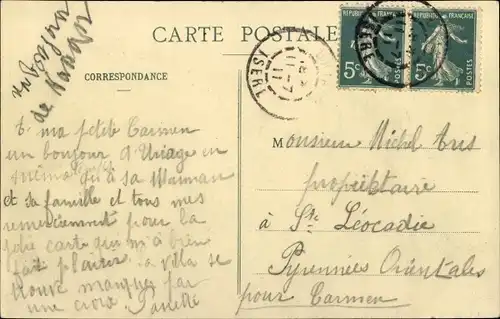 CARTE POSTALE
CORRESPONDANCE
RÉPUBLIQUE FRANÇAISE
5c POSTES
RÉPUBLIQUE FRANÇAISE
5c POSTES
ISERE
11
à ma petite Carmen
un bonjour d'Uriage en
même à sa Maman
et sa famille et tous mes
remerciement pour la
jolie carte qui m'a bien
fait plaisir la villa se
trouve marquée par
une croix
Monsieur Michel Aris
propriétaire
à Ste Léocadie
Pyrennées Orientales
pour Carmen